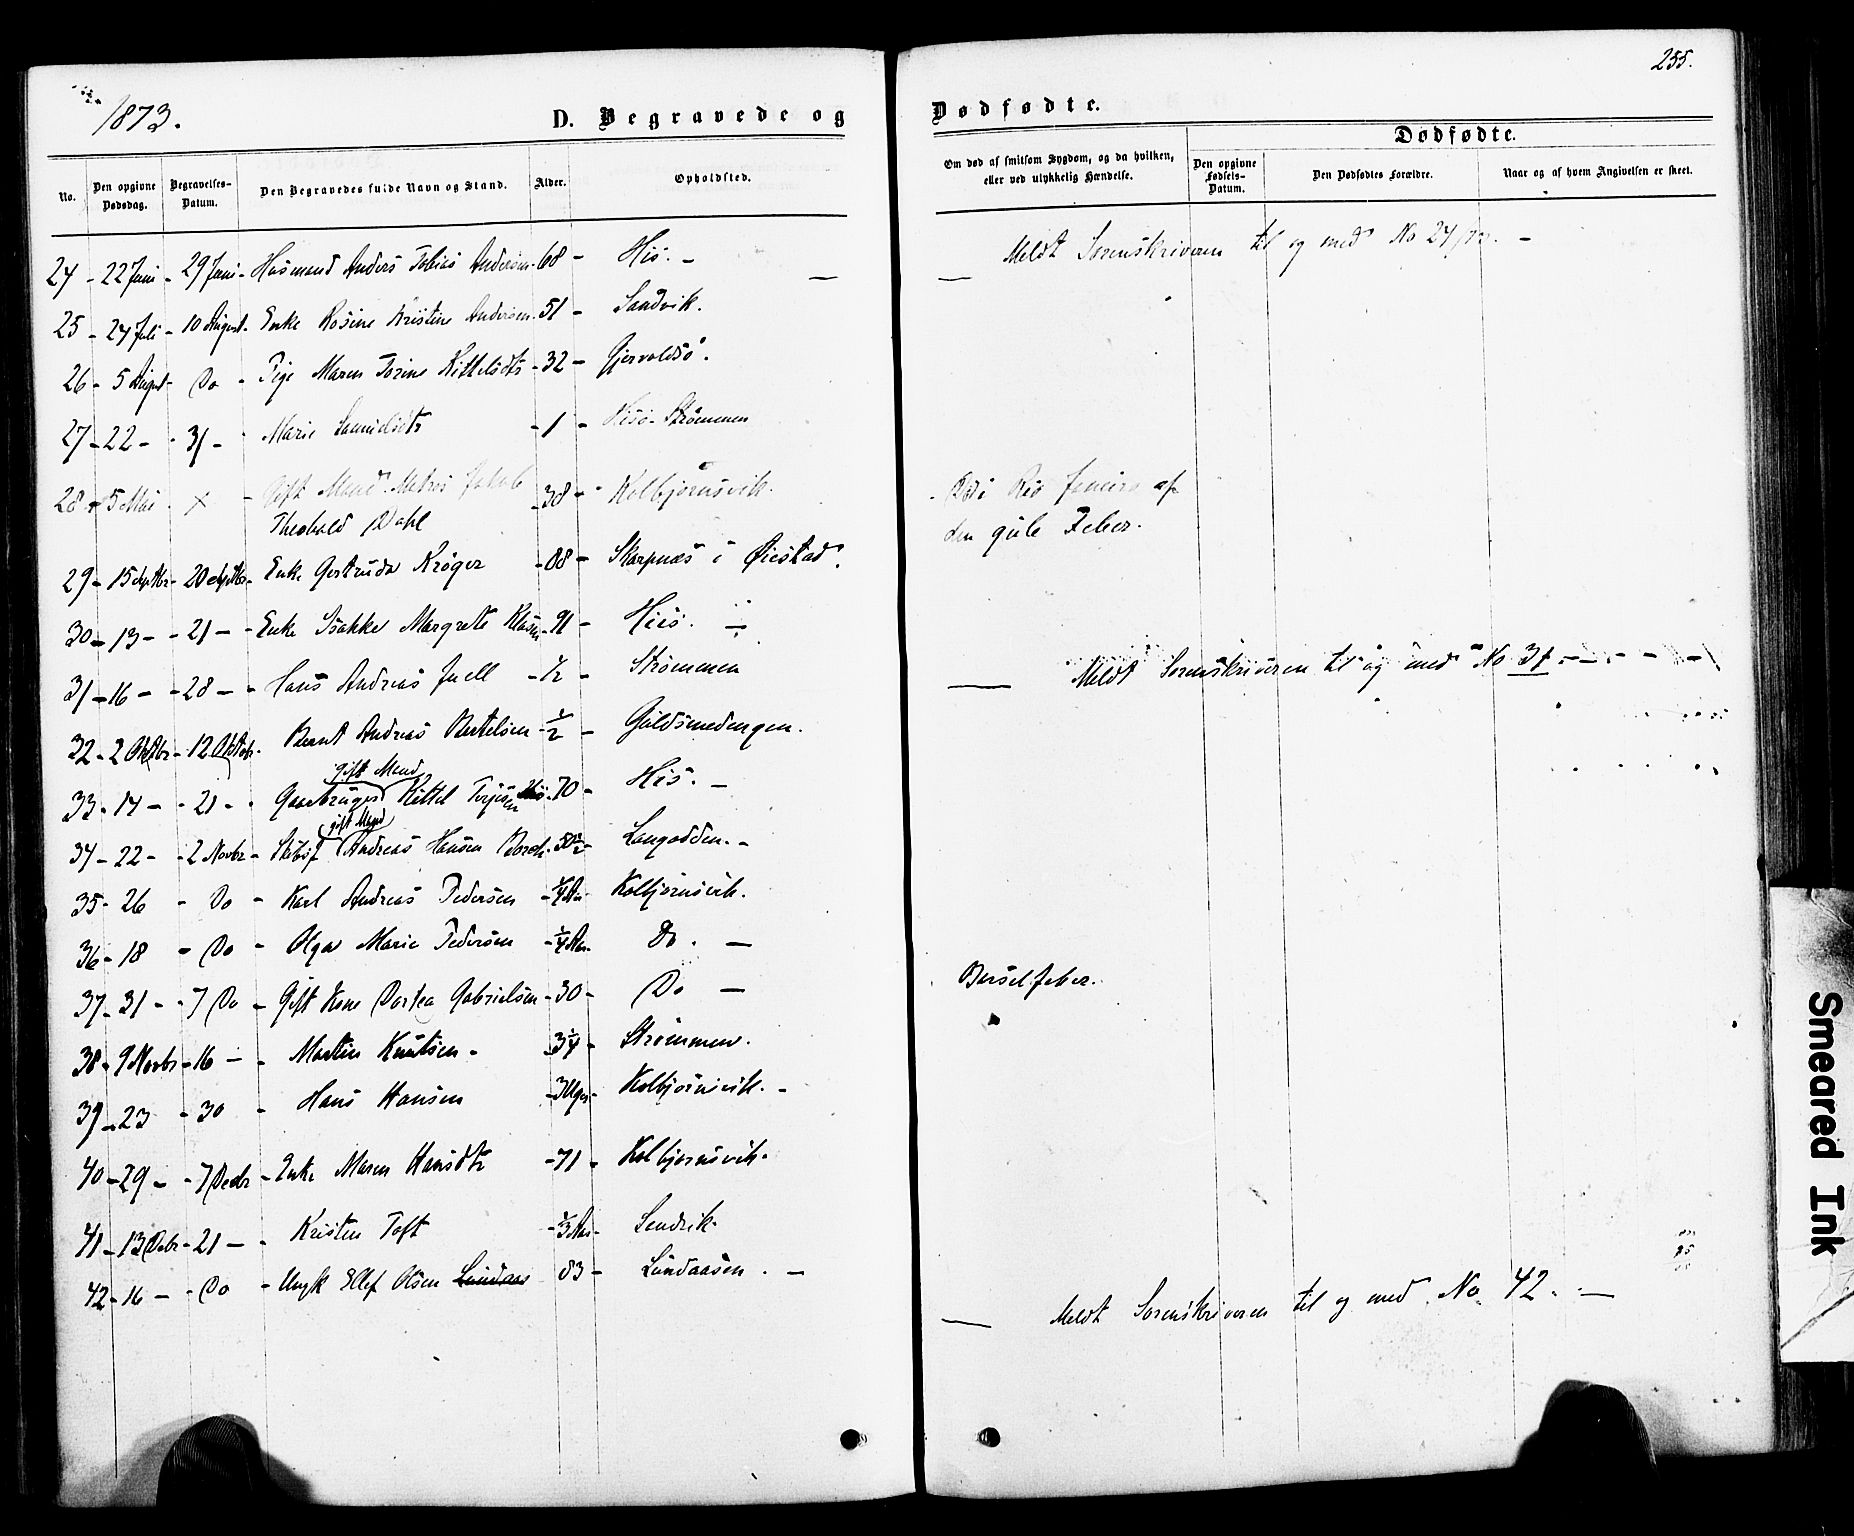 1873.
D. Begravede og
No.
Den opgivne Dødsdag.
Begravelses-Datum.
Den Begravedes fulde Navn og Stand.
Alder.
Opholdsted.
24 - 22 Juni - 29 Juni - Huusmand Anders Tobias Andersen - 68 - His. -
25 - 24 Juli - 10 August - Enke Rosine Kristine Andersen - 51 - Sandvik.
26 - 5 August - Do - Pige Maren Torine Kittelsdtr - 32 - Gjervoldsø.
27 - 22 - - 31 - Marie - 1 - Hisø-Strømmen
28 - 5 Mai - x - Gift Mand Matros Jakob
Theobald Dahl - 38 - Kolbjørnsvik.
29 - 15 Septbr - 20 Septbr - Enke Gertrude Krøger - 88 - Skarpnæs i Øiestad.
30 - 13 - - 21 - - Enke Isakke Margrete - 91 - Hiis. -
31 - 16 - - 28 - - Hans Andreas Juell - ½ - Strømmen
32 - 2 Oktbr - 12 Oktobr - Bernt Andreas Bertelsen - ½ - Guldsmedengen.
gift Mand
33 - 14 - - 21 - - Gaardbruger Kittel Terjesen - 70 - His. -
gift Mand
34 - 22 - - 2 Novbr - Skibsf Andreas Hansen - 50½ - Langodden. -
35 - 26 - Do - Karl Andreas Pedersen - ¼ Aar - Kolbjørnsvik.
36 - 18 - Do - Olga Marie Pedersen - ¼ Aar - Do. -
37 - 31 - - 7 Do - Gift Kone Dortea Gabrielsen - 30 - Do -
38 - 9 Novbr - 16 - - Martin Knutsen - 3¼ - Strømmen.
39 - 23 - 30 - Hans Hansen - 3 Uger - Kolbjørnsvik. -
40 - 29 - - 7 Decbr - Enke Maren Hansdtr - 71 - Kolbjørnsvik.
41 - 13 Debr - 21 - - Kristen Toft - ⅓ Aar - Sandvik.
42 - 16 - - Do - Ungk Ellef Olsen Lundaas 83 - Lundaasen. -
255.
Dødfødte.
Om død af smitsom Sygdom, og da hvilken, eller ved ulykkelig Hændelse.
Dødfødte.
Den opgivne Fødsels-Datum.
Den Dødfødtes Forældre.
Naar og af hvem Angivelsen er skeet.
Meldt Sorenskriveren til og med No 24/73. -
Død i Rio Janeiro af
den gule Feber.
Meldt Sorenskriveren til og med No 31
Barselfeber.
Meldt Sorenskriveren til og med No 42. -
Smeared Ink